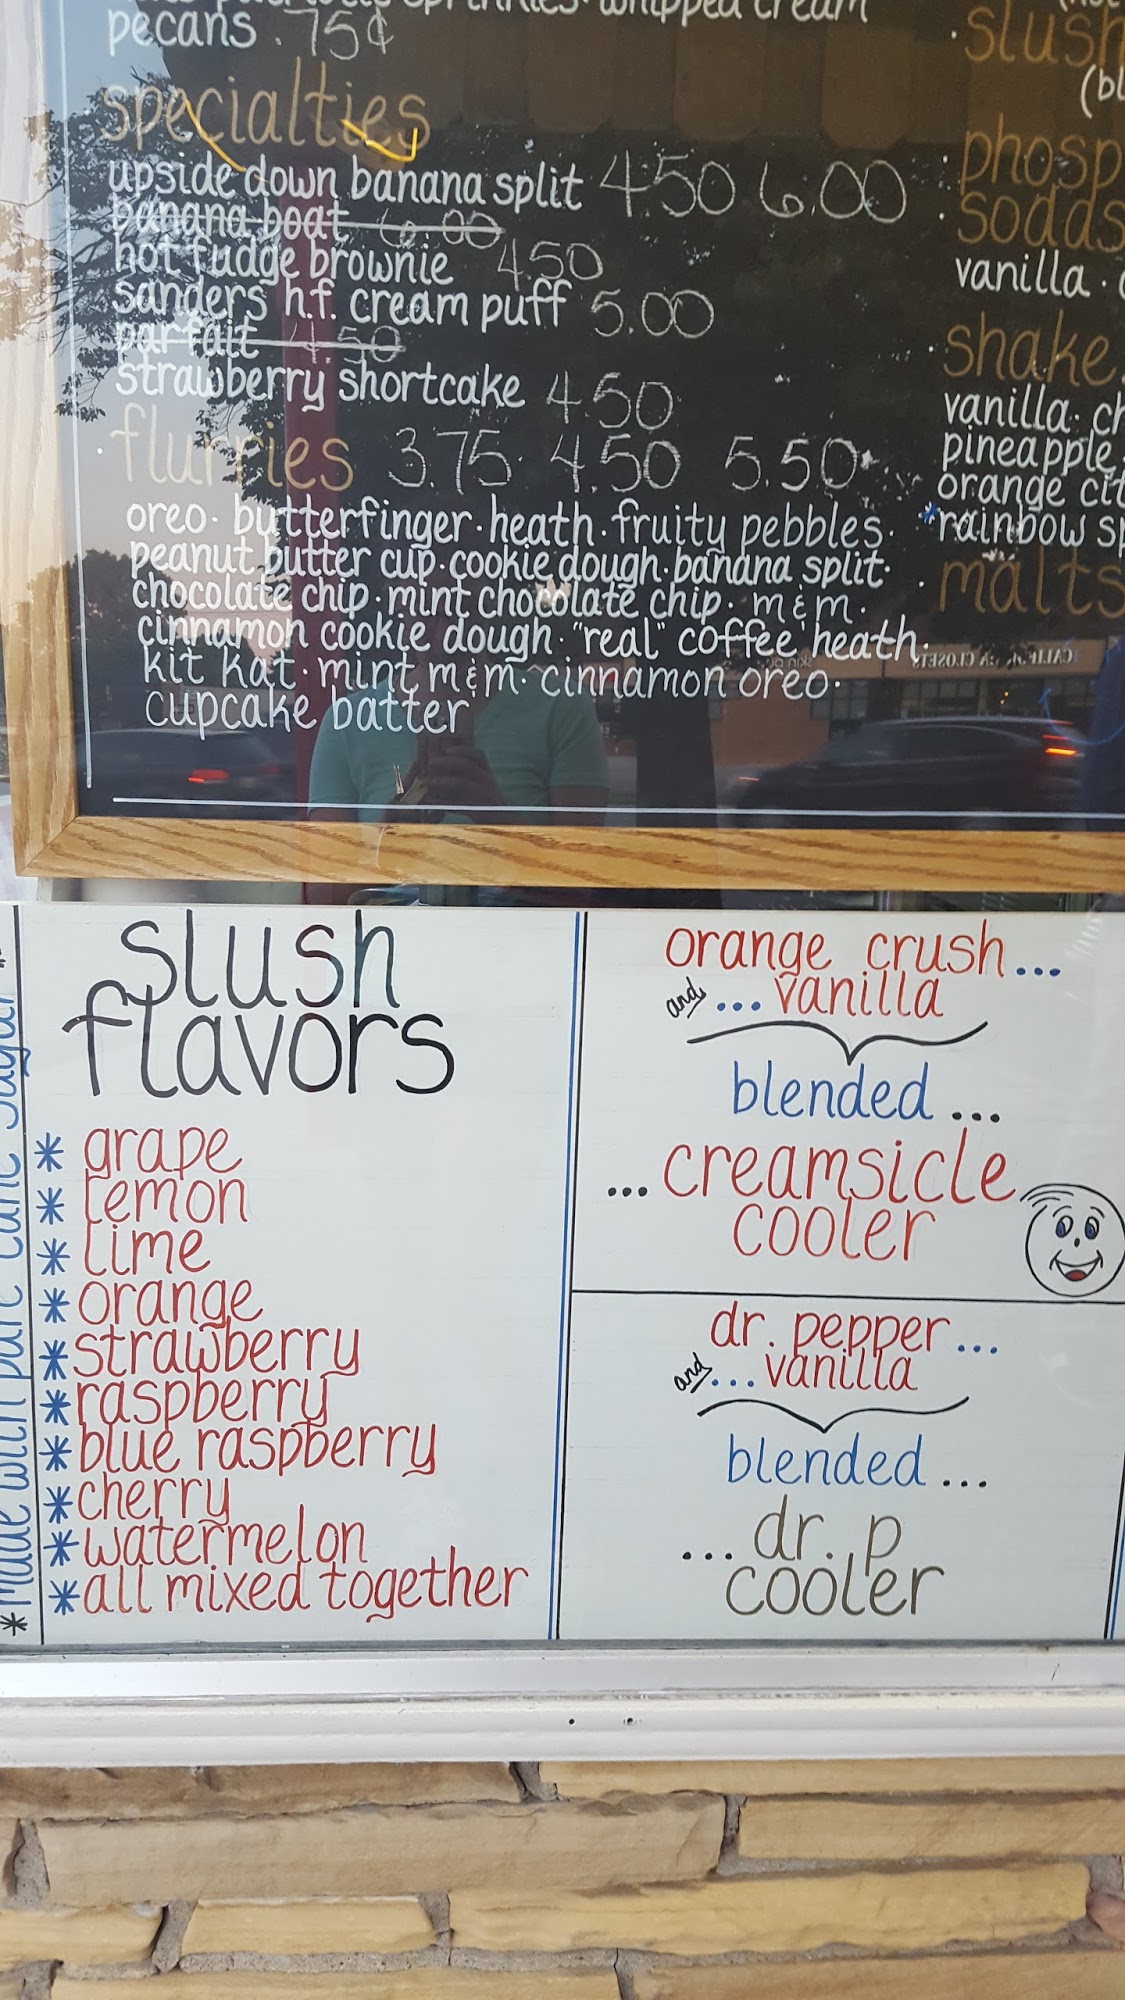 sprinkles · whipped cream
pecans · 75¢
specialties
upside down banana split 4.50 6.00
banana boat 6.00
hot fudge brownie 4.50
sanders h.f. cream puff 5.00
parfait 4.50
strawberry shortcake 4.50
· flurries 3.75 · 4.50 5.50
oreo · butterfinger · heath · fruity pebbles ·
peanut butter cup · cookie dough · banana split ·
chocolate chip · mint chocolate chip · m&m ·
cinnamon cookie dough · "real" coffee heath ·
kit kat · mint m&m · cinnamon oreo ·
cupcake batter
· slush
(bl
· phosp
· sodas
vanilla ·
· shake
vanilla · ch
pineapple
orange cit
*rainbow sp
· malts
slush
flavors
* grape
* lemon
* lime
* orange
* strawberry
* raspberry
* blue raspberry
* cherry
* watermelon
* all mixed together
* made with pure cane sugar *
orange crush...
and ... vanilla
blended ...
... creamsicle
cooler
dr. pepper ...
and ... vanilla
blended ...
... dr. p
cooler